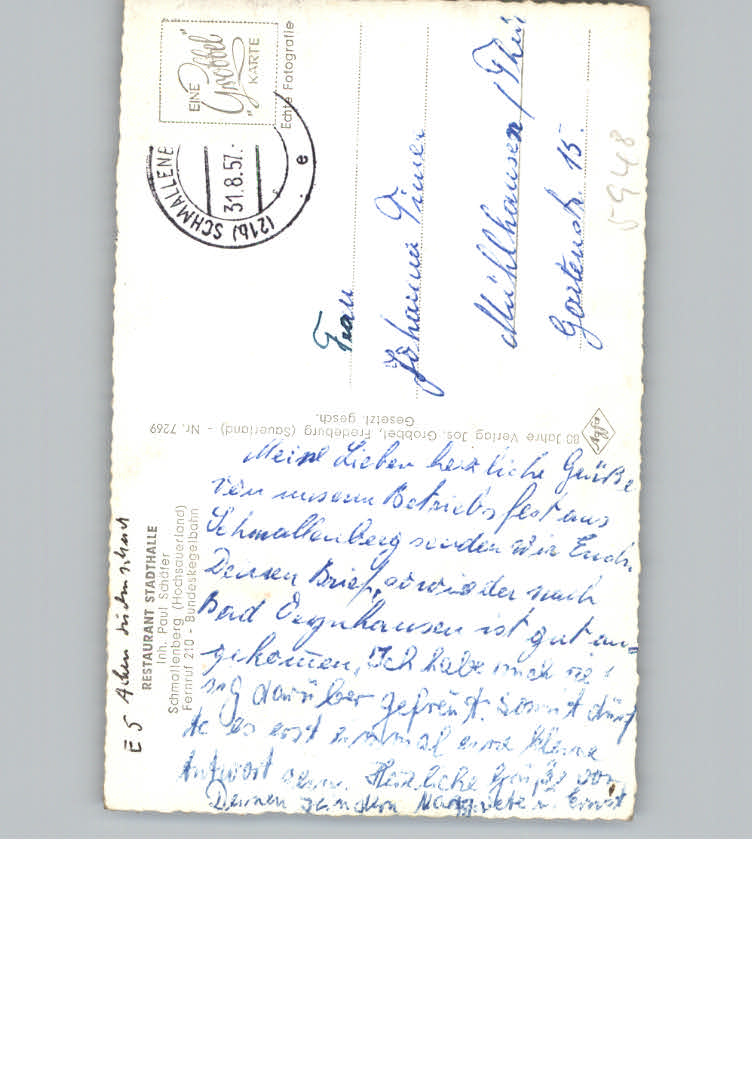 RESTAURANT STADTHALLE
Inh. Paul Schäfer
Schmallenberg (Hochsauerland)
Fernruf 210 - Bundeskegelbahn
Meine Lieben herzliche Grüße
von unserem Betriebsfest aus
Schmallenberg senden wir Euch.
Deinen Brief, der nach
Bad Oeynhausen ist gut an-
gekommen, Ich habe mich rie
sig darüber gefreut. Somit dürf
te es erst einmal eine kleine
Antwort sein. Herzliche Grüße von
Deinen Kindern u. Ernst
80 Jahre Verlag Jos. Grobbel, Fredeburg (Sauerland) - Nr. 7269
Gesetzl. gesch.
Agfa
EINE
„Grobbel"
KARTE
Echte Fotografie
(21b) SCHMALLENB
31.8.57.-
e
Frau
Johanna
Mühlhausen / Thür
Gartenstr. 15.
5948
E 5